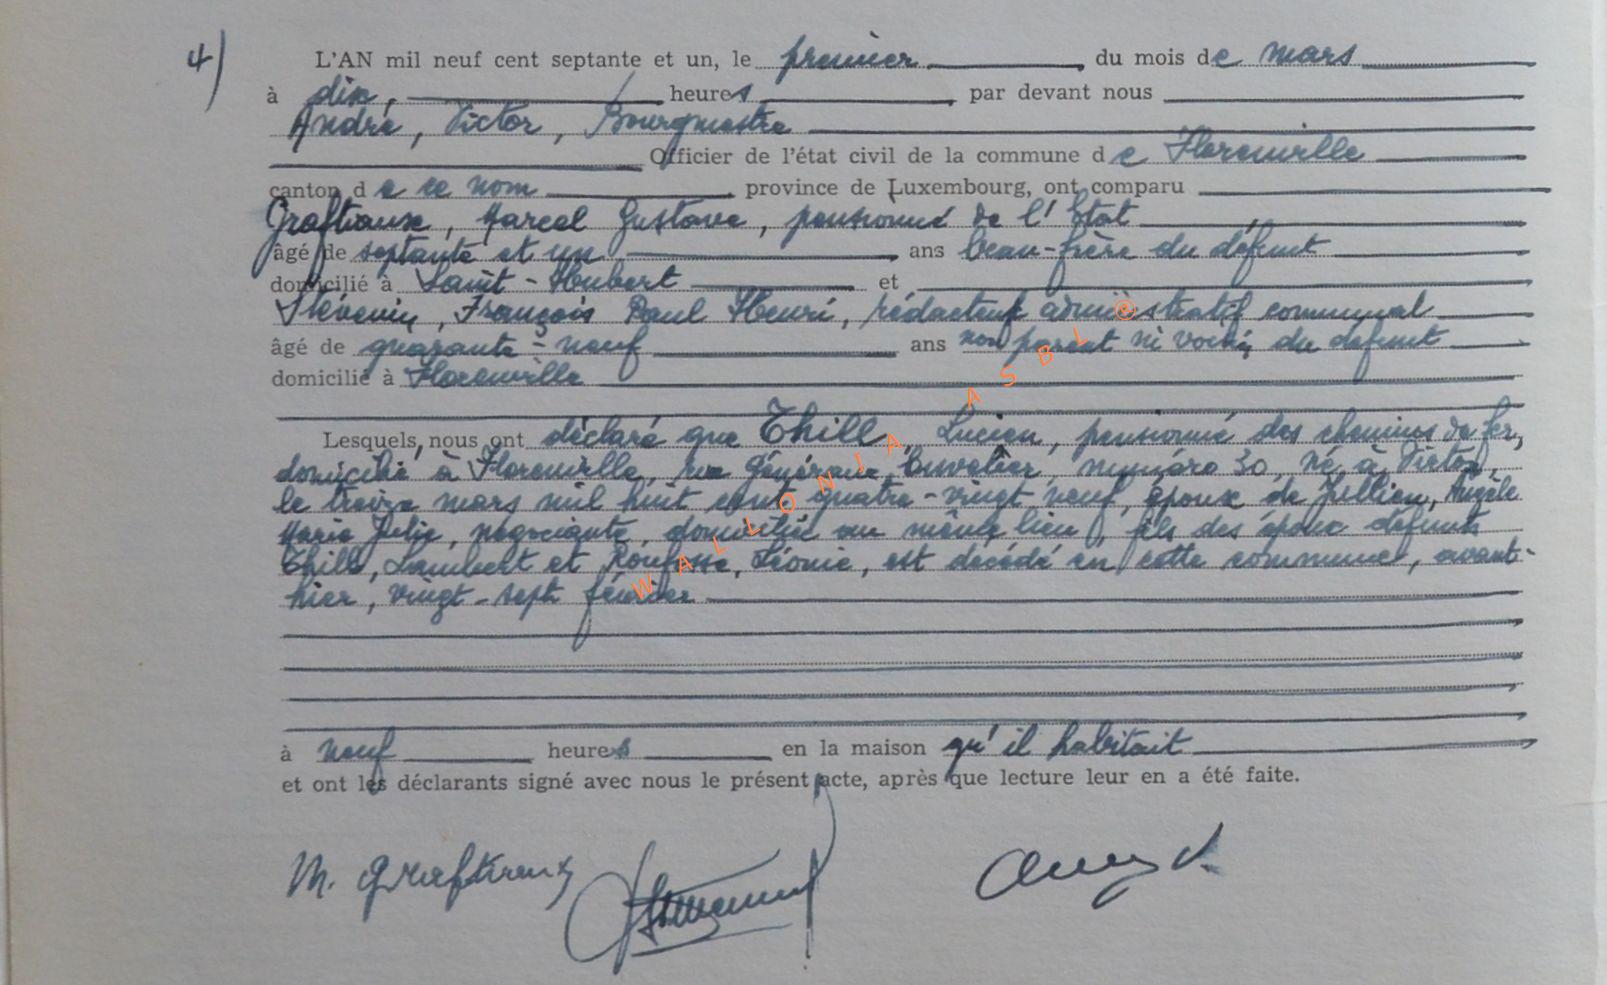 4)
L'AN mil neuf cent septante et un, le premier du mois de mars
à dix, heures par devant nous
André, Victor, Bourgmestre
Officier de l'état civil de la commune de Florenville
canton de ce nom province de Luxembourg, ont comparu
Graftiaux, Marcel Gustave, pensionné de l'Etat
âgé de septante et un ans beau-frère du défunt
domicilié à Saint-Hubert et
Stévenin, François Paul Henri, rédacteur administratif communal
âgé de quarante-neuf ans non parent ni voisin du défunt
domicilié à Florenville
Lesquels, nous ont déclaré que Thill, Lucien, pensionné des chemins de fer,
domicilié à Florenville, rue Général Cuvelier, numéro 30, né à Virton,
le treize mars mil huit cent quatre-vingt neuf, époux de Jullien, Angèle
Marie Julie, négociante, domiciliée au même lieu, fils des époux défunts
Thill, Lambert et Roufosse, Léonie, est décédé en cette commune, avant-
hier, vingt-sept février
à neuf heures en la maison qu'il habitait
et ont les déclarants signé avec nous le présent acte, après que lecture leur en a été faite.
M. Graftiaux
WALLONIA ASBL ®